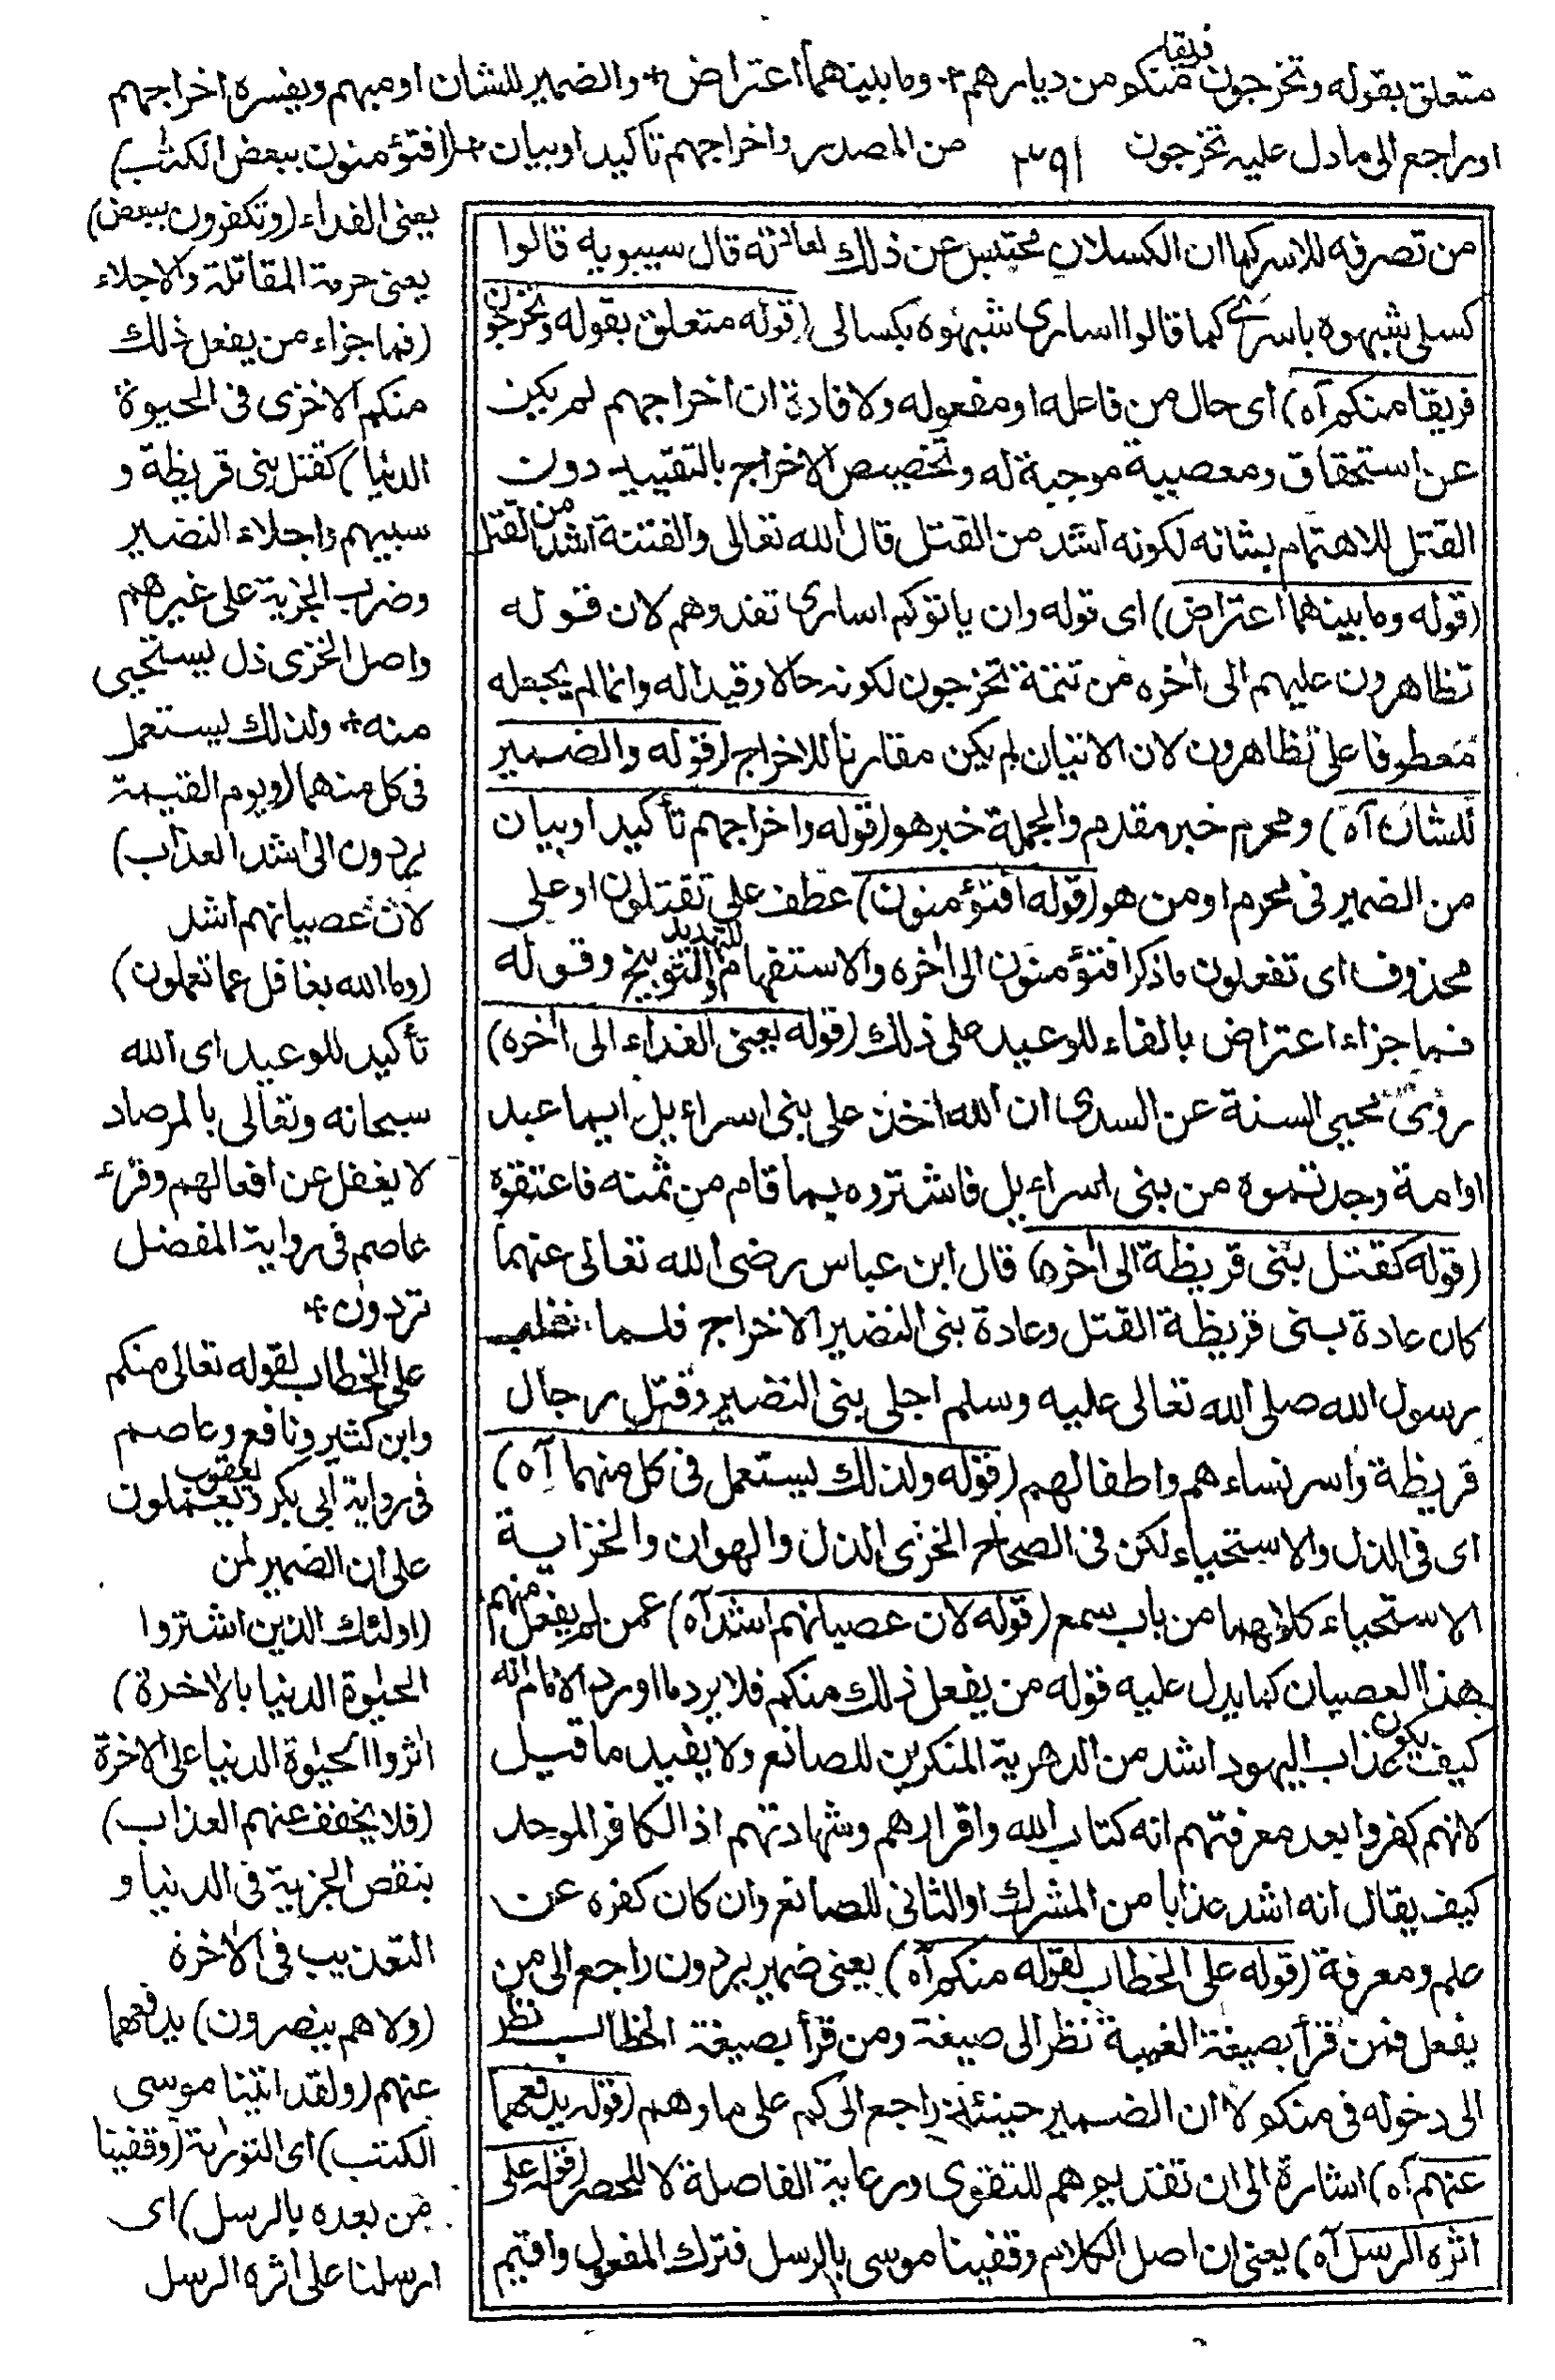 متعلق بقوله وتخرجون فريقا منكم من ديارهم * وما بينهما اعتراض * والضمير للشان او مبهم ويفسره اخراجهم
او راجع الى ما دل عليه تخرجون ٣٩١ من المصدر واخراجهم تاكيد او بيان * (افتؤمنون ببعض الكتٰب)
يعنى الفداء (وتكفرون ببعض)
يعنى حرمة المقاتلة والاجلاء
(فما جزاء من يفعل ذلك
منكم الا خزى فى الحيوة
الدنيا) كقتل بنى قريظة و
سبيهم واجلاء النضير
وضرب الجزية على غيرهم
واصل الخزى ذل يستحيى
منه * ولذلك يستعمل
فى كل منهما (ويوم القيٰمة
يردون الى اشد العذاب)
لان عصيانهم اشد
(وما الله بغافل عما تعملون)
تأكيد للوعيد اى الله
سبحانه وتعالى بالمرصاد
لا يغفل عن افعالهم وقرئ
عاصم فى رواية المفضل
تردون *
على الخطاب لقوله تعالى منكم
وابن كثير ونافع وعاصم
فى رواية ابى بكر ويعقوب يعملون
على ان الضمير لمن
(اولئك الذين اشتروا
الحيٰوة الدنيا بالاخرة)
اثروا الحيٰوة الدنيا على الاخرة
(فلا يخفف عنهم العذاب)
بنقص الجزية فى الدنيا و
التعذيب فى الاخرة
(ولا هم ينصرون) بدفعهما
عنهم (ولقد اتينا موسى
الكتٰب) اى التورٰية (وقفينا
من بعده بالرسل) اى
ارسلنا على اثره الرسل
من تصرفه للاسر كما ان الكسلان محتبس عن ذلك لعادته قال سيبويه قالوا
كسلى شبهوه باسرى كما قالوا اسارى شبهوه بكسالى (قوله متعلق بقوله وتخرجون
فريقا منكم آه) اى حال من فاعله او مفعوله ولافادة ان اخراجهم لم يكن
عن استحقاق ومعصيية موجبة له وتخصيص الاخراج بالتقييد دون
القتل للاهتمام بشانه لكونه اشد من القتل قال الله تعالى والفتنة اشد من القتل
(قوله وما بينهما اعتراض) اى قوله وان ياتوكم اسارى تفدوهم لان قوله
تظاهرون عليهم الى اٰخره من تتمة تخرجون لكونه حالا وقيدا له وانما لم يجعله
معطوفا على تظاهرون لان الاتيان لم يكن مقارنا للاخراج (قوله والضمير
للشان آه) ومحرم خبر مقدم والجملة خبر هو (قوله واخراجهم تأكيد او بيان
من الضمير فى محرم او من هو (قوله افتؤمنون) عطف على تقتلون او على
محذوف اى تفعلون ما ذكر افتؤمنون الى اٰخره والاستفهام للتهديد والتوبيخ وقوله
فما جزاء اعتراض بالفاء للوعيد على ذلك (قوله يعنى الفداء الى اٰخره)
روى محيى السنة عن السدى ان الله اخذ على بنى اسراءيل ايما عبد
او امة وجدتموه من بنى اسراءيل فاشتروه بما قام من ثمنه فاعتقوه
(قوله كقتل بنى قريظة الى اٰخره) قال ابن عباس رضى الله تعالى عنهما
كان عادة بنى قريظة القتل وعادة بنى النضير الاخراج فلما
رسول الله صلى الله تعالى عليه وسلم اجلى بنى النضير وقتل رجال
قريظة واسر نساءهم واطفالهم (قوله ولذلك يستعمل فى كل منهما آه)
اى فى الذل والاستحياء لكن فى الصحاح الخزى الذل والهوان والخزاية
الاستحياء كلاهما من باب سمع (قوله لان عصيانهم اشد آه) عمن لم يفعل منهم
هذا العصيان كما يدل عليه قوله من يفعل ذلك منكم فلا يرد ما اورد الامام انه
كيف يكون عذاب اليهود اشد من الدهرية المنكرين للصانع ولا يفيد ما قيل
لانهم كفروا بعد معرفتهم انه كتاب الله واقرارهم وشهادتهم اذ الكافر الموحد
كيف يقال انه اشد عذابا من المشرك او الثانى للصانع وان كان كفره عن
علم ومعرفة (قوله على الخطاب لقوله منكم آه) يعنى ضمير يردون راجع الى من
يفعل فمن قرأ بصيغة الغيبة نظر الى صيغة ومن قرأ بصيغة الخطاب نظر
الى دخوله فى منكم لا ان الضمير حينئذ راجع الى كم على ما وهم (قوله بدفعهما
عنهم آه) اشارة الى ان تقديم هم للتقوى ورعاية الفاصلة لا للحصر (قوله على
اثره الرسل آه) يعنى ان اصل الكلام وقفينا موسى بالرسل فترك المفعول واقيم